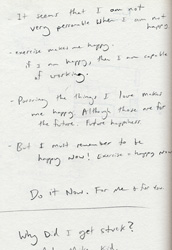 It seems that I am not
very personable when I am not
happy
- exercise makes me happy.
if I am happy, then I am capable
of working.
- Pursuing the things I love makes
me happy. Although those are for
the future. Future happiness.
- But I must remember to be
happy now! Exercise = happy now
Do it Now. For me & for
Why Did I get stuck?
Kid.